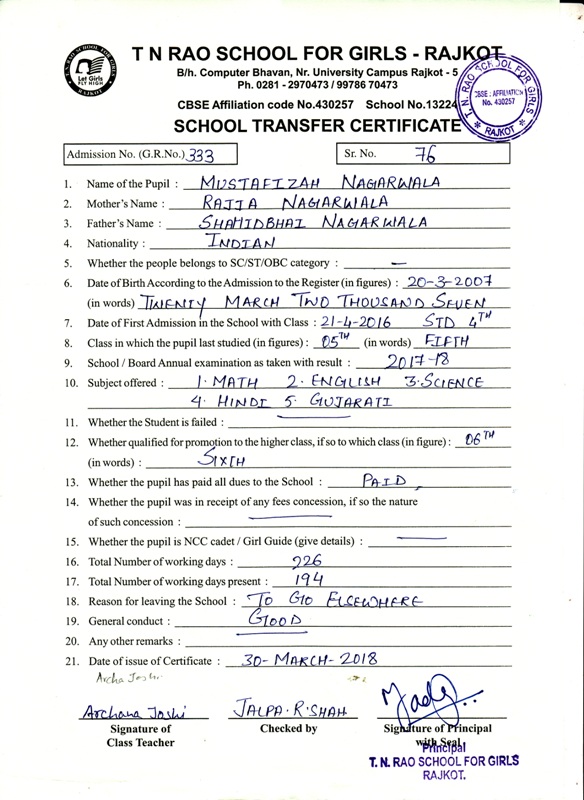 T. N. RAO SCHOOL FOR GIRLS
Let Girls
FLY HIGH
RAJKOT
T N RAO SCHOOL FOR GIRLS - RAJKOT
B/h. Computer Bhavan, Nr. University Campus Rajkot - 5
Ph. 0281 - 2970473 / 99786 70473
CBSE Affiliation code No.430257 School No.13224
T. N. RAO SCHOOL FOR GIRLS
CBSE : AFFILIATION
No. 430257
* RAJKOT *
SCHOOL TRANSFER CERTIFICATE
Admission No. (G.R.No.) 333 Sr. No. 76
1. Name of the Pupil : MUSTAFIZAH NAGARWALA
2. Mother's Name : RAJJA NAGARWALA
3. Father's Name : SHAHIDBHAI NAGARWALA
4. Nationality : INDIAN
5. Whether the people belongs to SC/ST/OBC category : —
6. Date of Birth According to the Admission to the Register (in figures) : 20-3-2007
(in words) TWENTY MARCH TWO THOUSAND SEVEN
7. Date of First Admission in the School with Class : 21-4-2016 STD 4TH
8. Class in which the pupil last studied (in figures) : 05TH (in words) FIFTH
9. School / Board Annual examination as taken with result : 2017-18
10. Subject offered : 1. MATH 2. ENGLISH 3. SCIENCE
4. HINDI 5. GUJARATI
11. Whether the Student is failed : —
12. Whether qualified for promotion to the higher class, if so to which class (in figure) : 06TH
(in words) : SIXTH
13. Whether the pupil has paid all dues to the School : PAID
14. Whether the pupil was in receipt of any fees concession, if so the nature
of such concession : —
15. Whether the pupil is NCC cadet / Girl Guide (give details) : —
16. Total Number of working days : 226
17. Total Number of working days present : 194
18. Reason for leaving the School : TO GO ELSEWHERE
19. General conduct : GOOD
20. Any other remarks : —
21. Date of issue of Certificate : 30-MARCH-2018
Archa Joshi
Archana Joshi JALPA.R.SHAH
Signature of Checked by Signature of Principal
Class Teacher with Seal
Principal
T. N. RAO SCHOOL FOR GIRLS
RAJKOT.